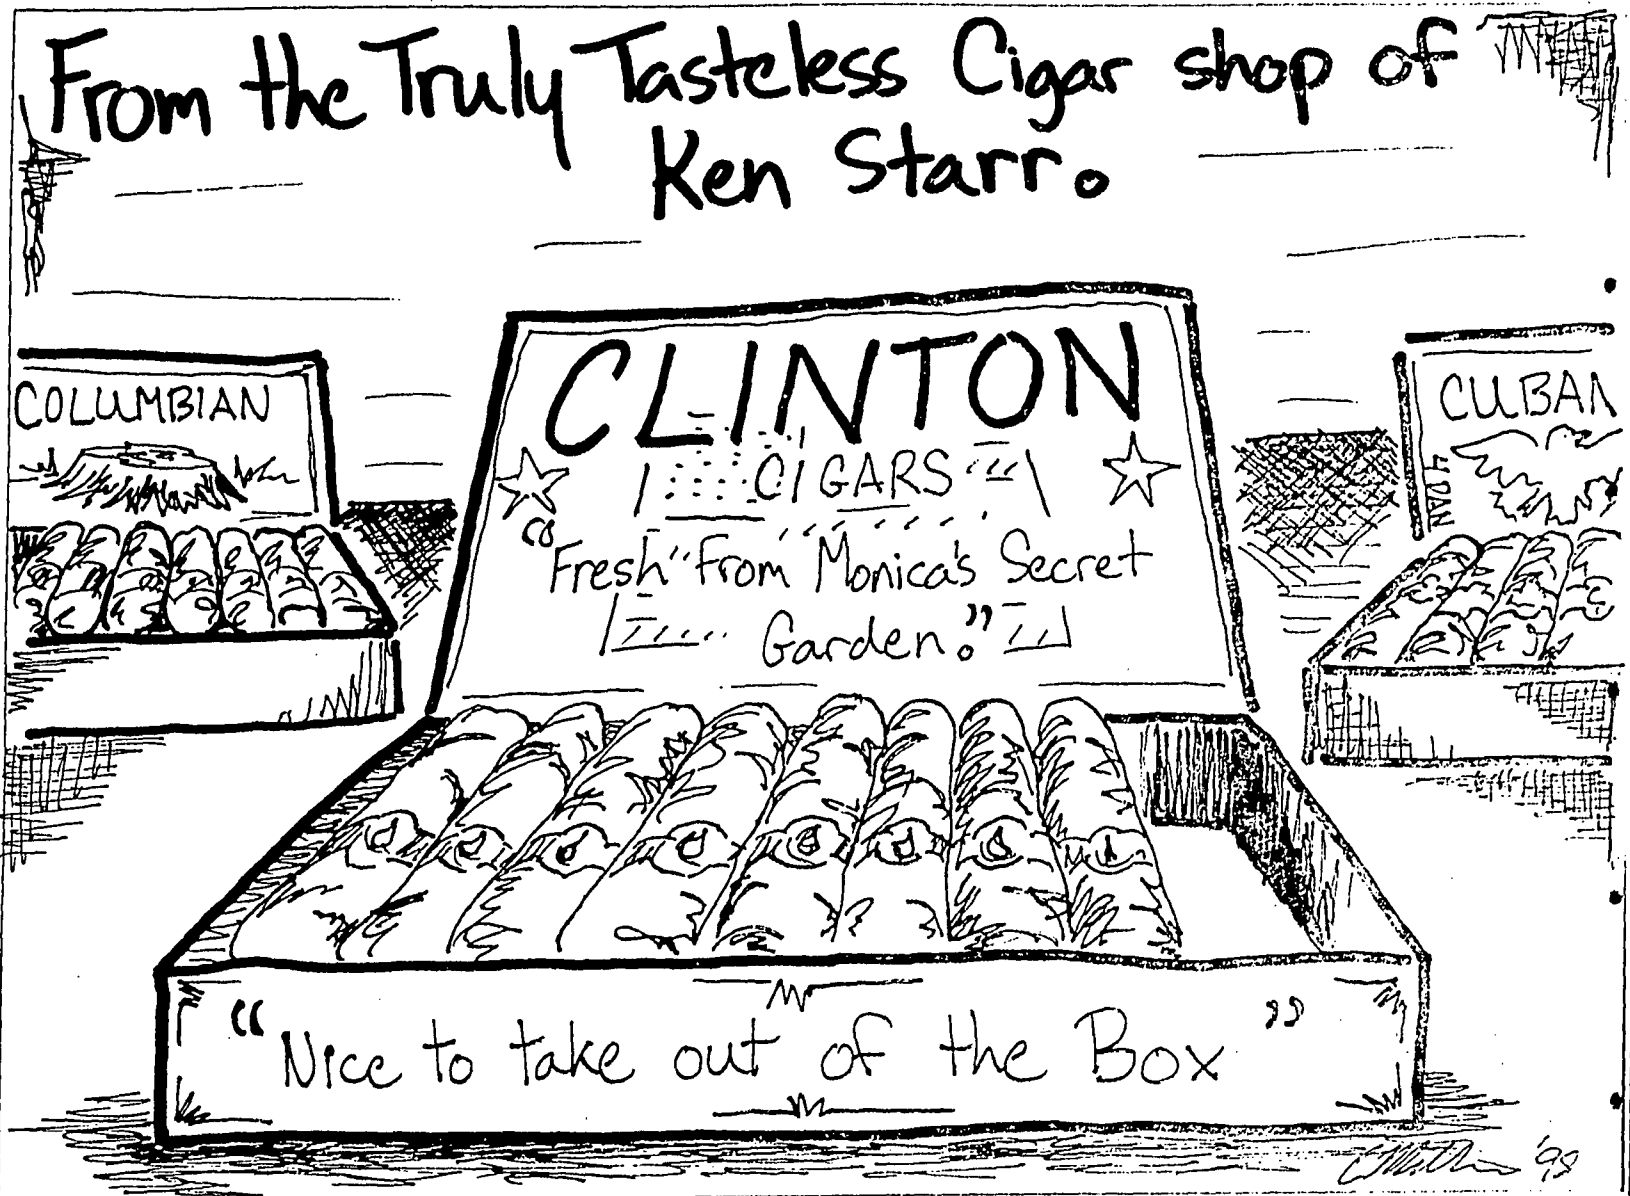 From the Truly Tasteless Cigar shop of
Ken Starr.
COLUMBIAN
CLINTON
CIGARS
"Fresh" From Monica's Secret
Garden."
CUBAN
"Nice to take out of the Box"
'98